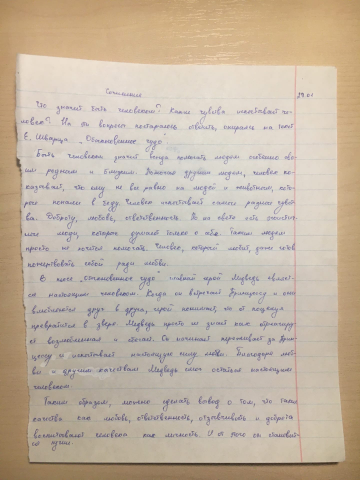 Сочинение
29.01
Что значит быть человеком? Какие чувства испытывает че-
ловек? На эти вопросы постараюсь ответить, опираясь на текст
Е. Шварца „Обыкновенное чудо".
Быть человеком значит всегда помогать людям особенно сво-
им родным и близким. Помогая другим людям, человек по-
казывает, что ему не все равно на людей и животного, кото-
рого попали в беду. Человек испытывает самого разные чувст-
ва. Доброту, любовь, ответственность. Но на свете есть эгоистич-
ные люди, которые думают только о себе. Таким людям
просто не хочется помогать. Человек, который любит, даже готов
пожертвовать собой ради любви.
В пьесе „Обыкновенное чудо" главный герой Медведь являет-
ся настоящим человеком. Когда он встречает Принцессу и они
влюбляются друг в друга, герой понимает, что от поцелуя
превратится в зверя. Медведь просто не знает как отреагиру-
ет возлюбленная и сбегает. Он начинает переживать за Прин-
цессу и испытывает настоящую силу любви. Благодаря люб-
ви и другим качествам Медведь смог остаться настоящим
человеком.
Таким образом, можно сделать вывод о том, что такие
качества как любовь, ответственность, отзывчивость и доброта
воспитывают человека как личность. И от этого он становит-
ся лучше.